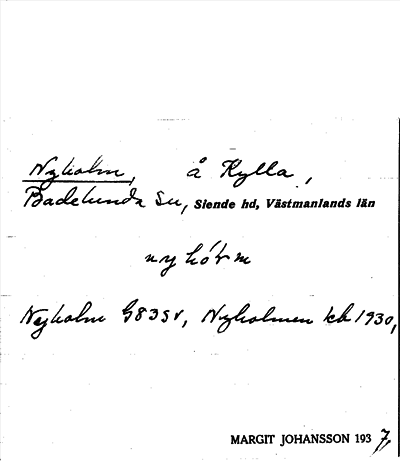 Nyholm, å Kylla,
Badelunda sn, Siende hd, Västmanlands län
nyhólm
Nyholm G83SV, Nyholmen kb 1930,
MARGIT JOHANSSON 1937,